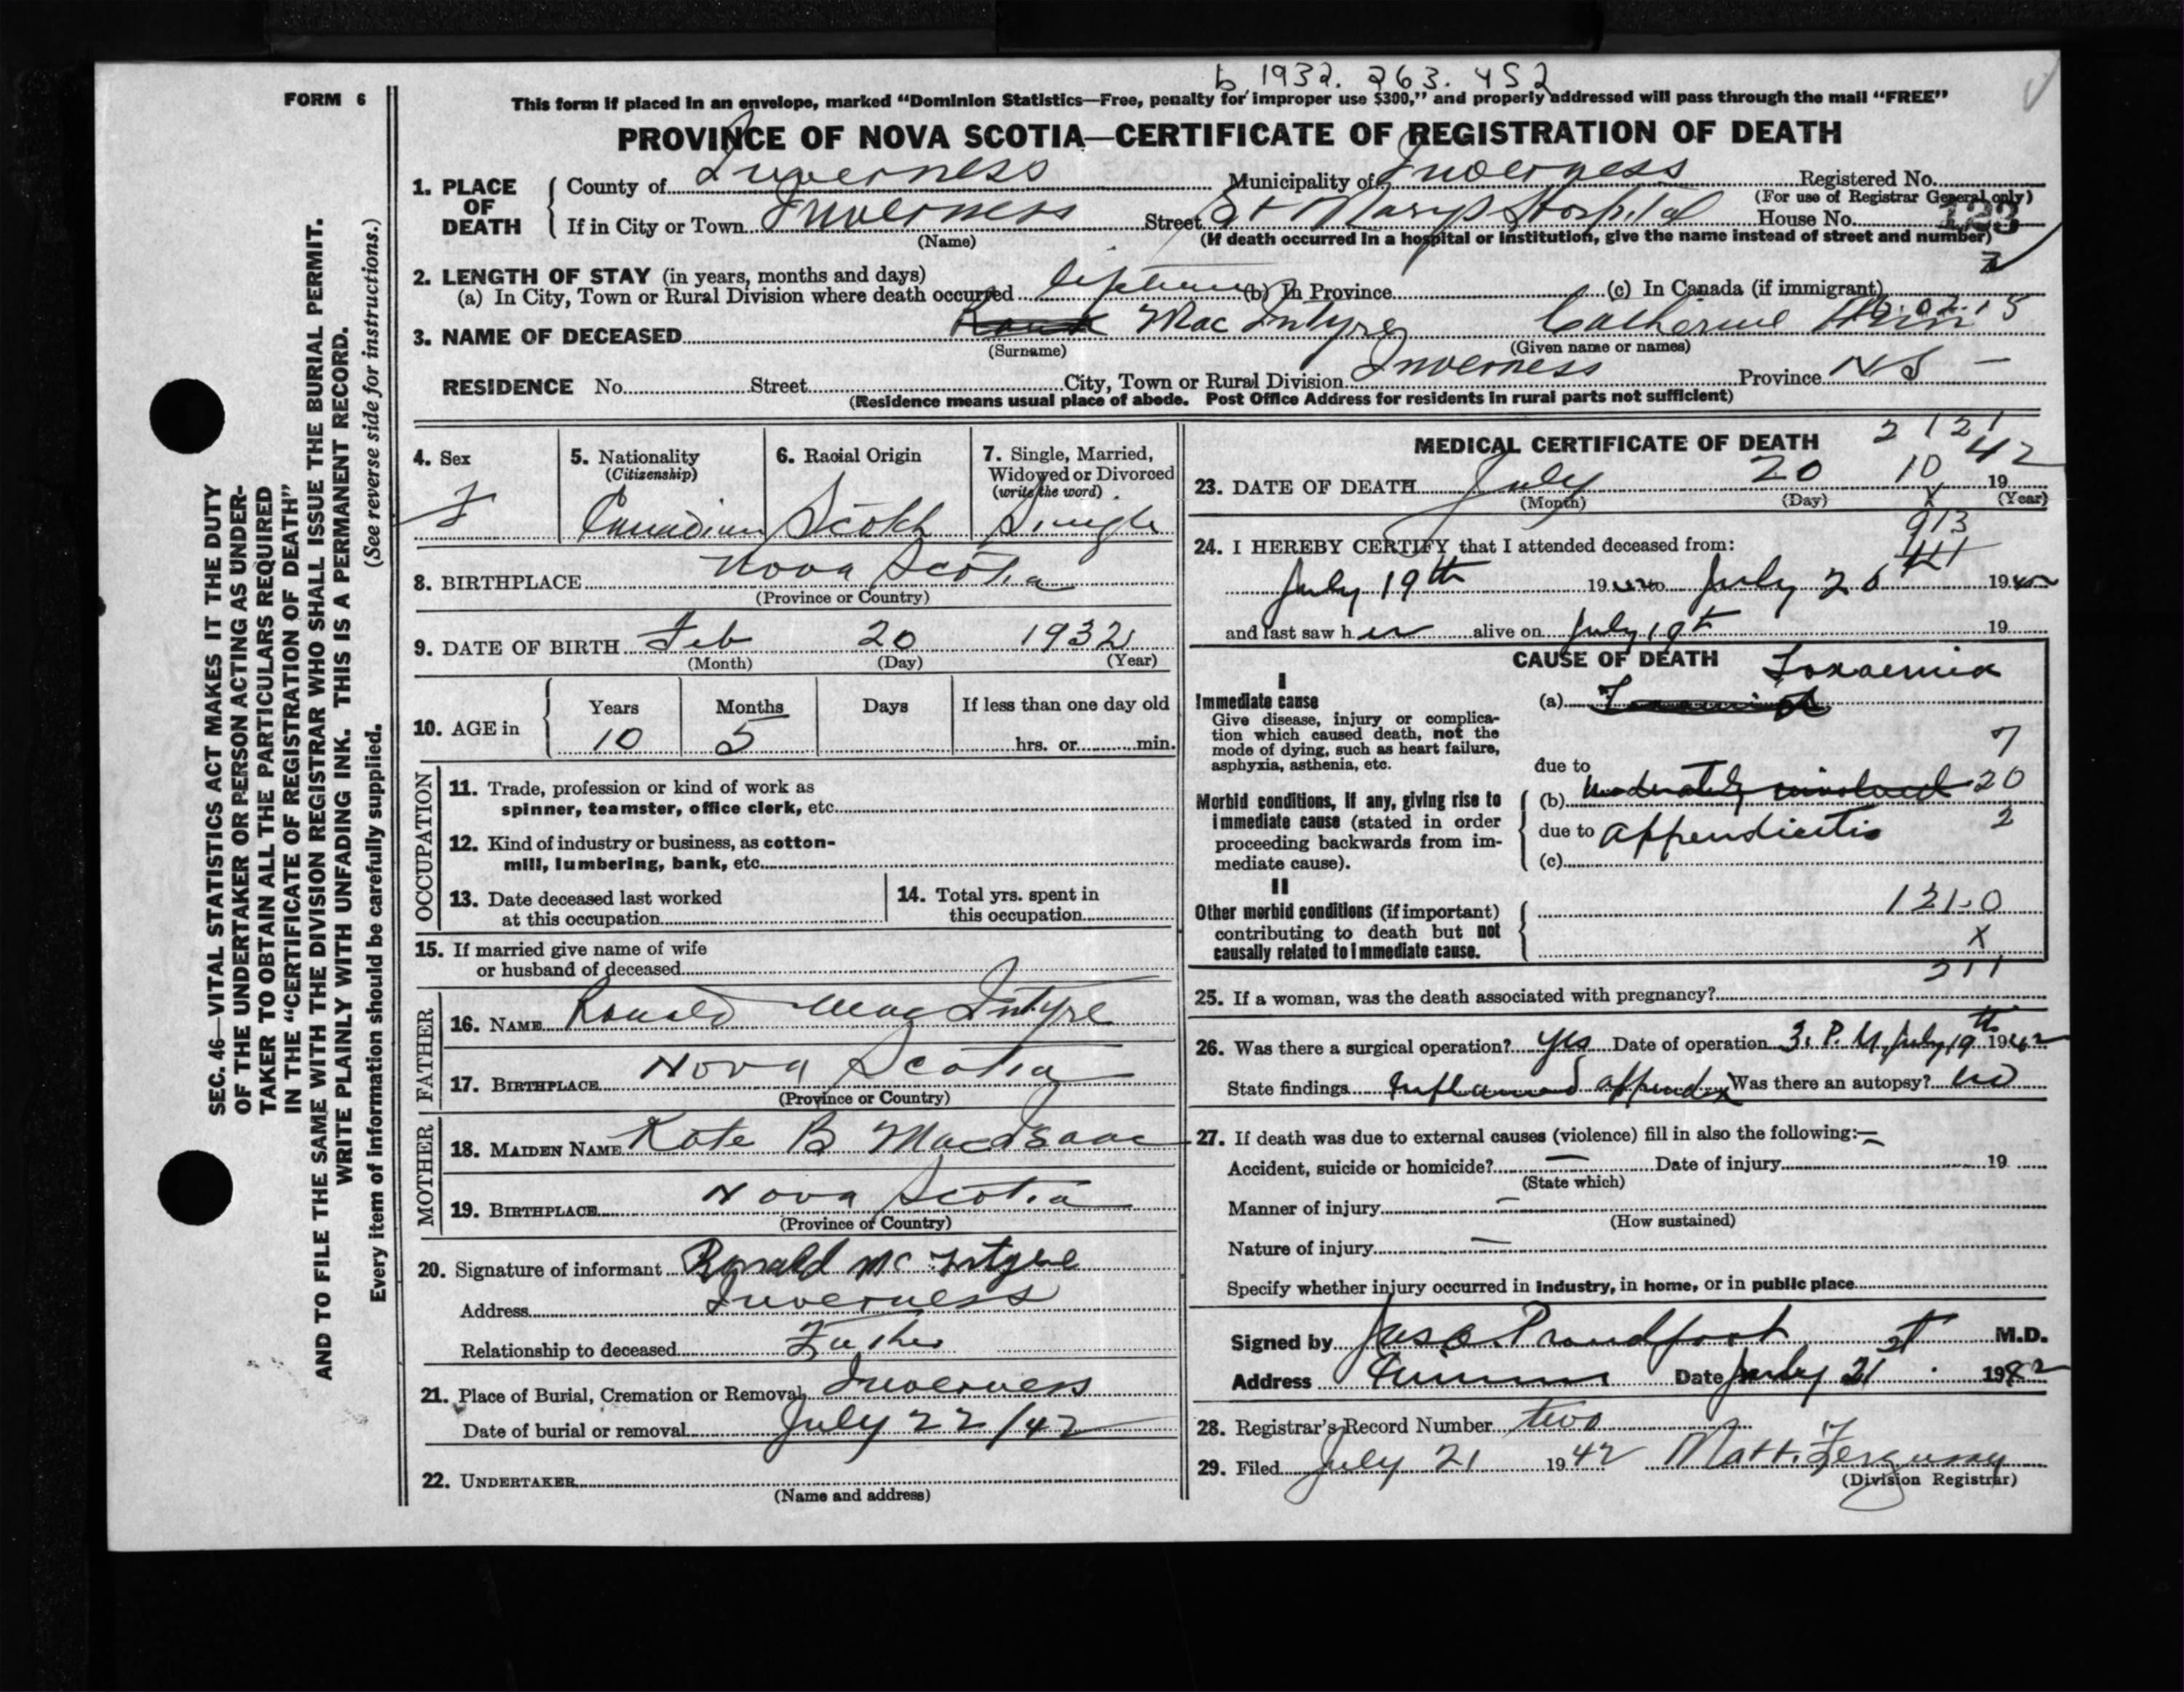 b 1932. 263. 452
FORM 6
This form if placed in an envelope, marked "Dominion Statistics—Free, penalty for improper use $300," and properly addressed will pass through the mail "FREE"
PROVINCE OF NOVA SCOTIA—CERTIFICATE OF REGISTRATION OF DEATH
1. PLACE OF DEATH
County of Inverness Municipality of Inverness Registered No.
(For use of Registrar General only)
If in City or Town Inverness Street St Mary's Hospital House No. 123
(Name) (If death occurred in a hospital or institution, give the name instead of street and number)
2. LENGTH OF STAY (in years, months and days)
(a) In City, Town or Rural Division where death occurred lifetime (b) In Province (c) In Canada (if immigrant)
3. NAME OF DECEASED Mac Intyre Catherine
(Surname) (Given name or names)
RESIDENCE No. Street City, Town or Rural Division Inverness Province NS —
(Residence means usual place of abode. Post Office Address for residents in rural parts not sufficient)
SEC. 46—VITAL STATISTICS ACT MAKES IT THE DUTY
OF THE UNDERTAKER OR PERSON ACTING AS UNDER-
TAKER TO OBTAIN ALL THE PARTICULARS REQUIRED
IN THE "CERTIFICATE OF REGISTRATION OF DEATH"
AND TO FILE THE SAME WITH THE DIVISION REGISTRAR WHO SHALL ISSUE THE BURIAL PERMIT.
WRITE PLAINLY WITH UNFADING INK. THIS IS A PERMANENT RECORD.
Every item of information should be carefully supplied. (See reverse side for instructions.)
4. Sex
F
5. Nationality
(Citizenship)
Canadian
6. Racial Origin
Scotch
7. Single, Married,
Widowed or Divorced
(write the word)
Single
8. BIRTHPLACE Nova Scotia
(Province or Country)
9. DATE OF BIRTH Feb 20 1932
(Month) (Day) (Year)
10. AGE in
Years Months Days If less than one day old
10 5 hrs. or min.
OCCUPATION
11. Trade, profession or kind of work as
spinner, teamster, office clerk, etc.
12. Kind of industry or business, as cotton-
mill, lumbering, bank, etc.
13. Date deceased last worked
at this occupation
14. Total yrs. spent in
this occupation
15. If married give name of wife
or husband of deceased
FATHER
16. NAME Ronald Mac Intyre
17. BIRTHPLACE Nova Scotia
(Province or Country)
MOTHER
18. MAIDEN NAME Kate B MacIsaac
19. BIRTHPLACE Nova Scotia
(Province or Country)
20. Signature of informant Ronald Mc Intyre
Address Inverness
Relationship to deceased Father
21. Place of Burial, Cremation or Removal Inverness
Date of burial or removal July 22/42
22. UNDERTAKER
(Name and address)
2 121
MEDICAL CERTIFICATE OF DEATH
23. DATE OF DEATH July 20 10 19 42
(Month) (Day) (Year)
x
913
24. I HEREBY CERTIFY that I attended deceased from:
July 19th 1942 to July 20 1942
and last saw her alive on July 19th 19
CAUSE OF DEATH
I
Immediate cause
Give disease, injury or complica-
tion which caused death, not the
mode of dying, such as heart failure,
asphyxia, asthenia, etc.
(a) Toxaemia
7
due to
Morbid conditions, if any, giving rise to
immediate cause (stated in order
proceeding backwards from im-
mediate cause).
(b) 20
due to appendicitis 2
(c)
II
Other morbid conditions (if important)
contributing to death but not
causally related to immediate cause.
121.0
X
211
25. If a woman, was the death associated with pregnancy?
26. Was there a surgical operation? Yes Date of operation 3. P.M. July 19th 1942
State findings Inflamed appendix Was there an autopsy? No
27. If death was due to external causes (violence) fill in also the following:—
Accident, suicide or homicide? — Date of injury 19
(State which)
Manner of injury —
(How sustained)
Nature of injury —
Specify whether injury occurred in industry, in home, or in public place
Signed by Jas. O. Proudfoot M.D.
Address Date July 21st 1942
28. Registrar's Record Number two
29. Filed July 21 1942 Matt. F. Ferguson
(Division Registrar)